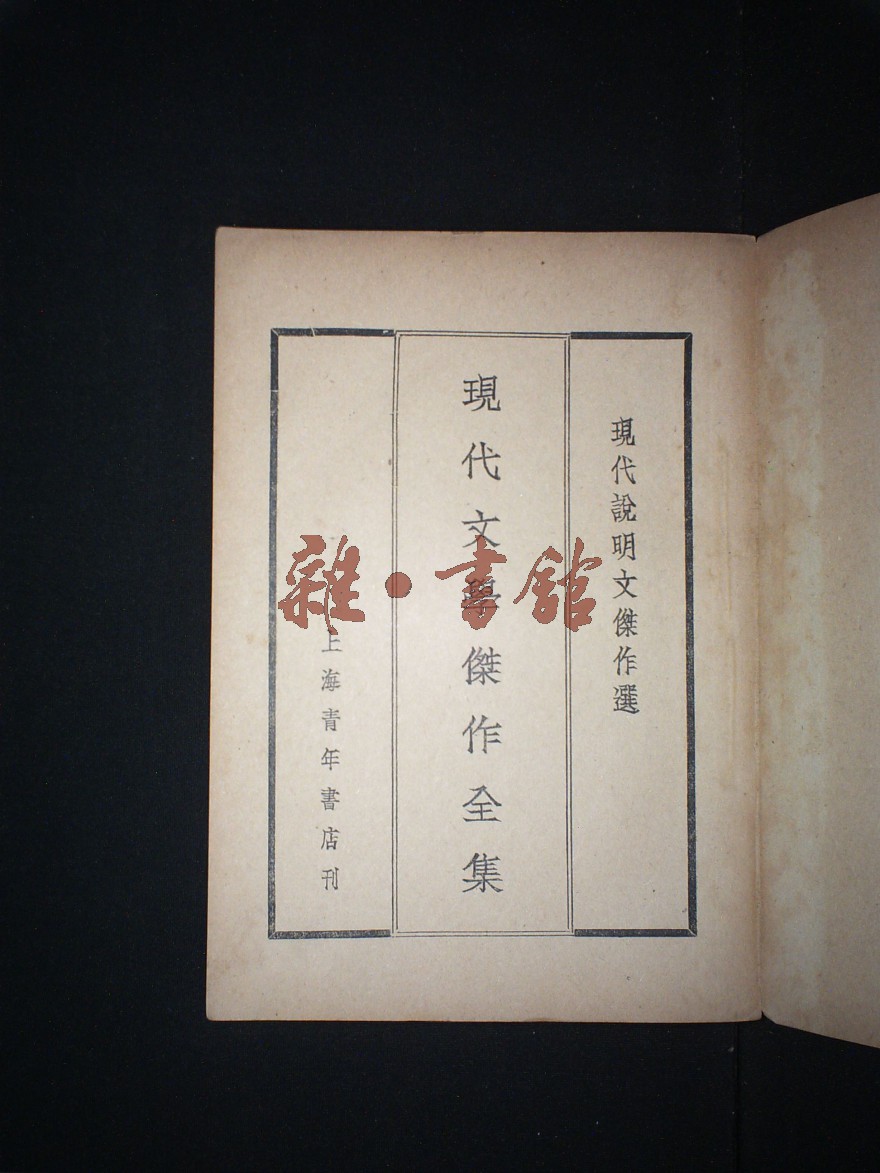 現代說明文傑作選
現代文學傑作全集
上海青年書店刊
雜·書館